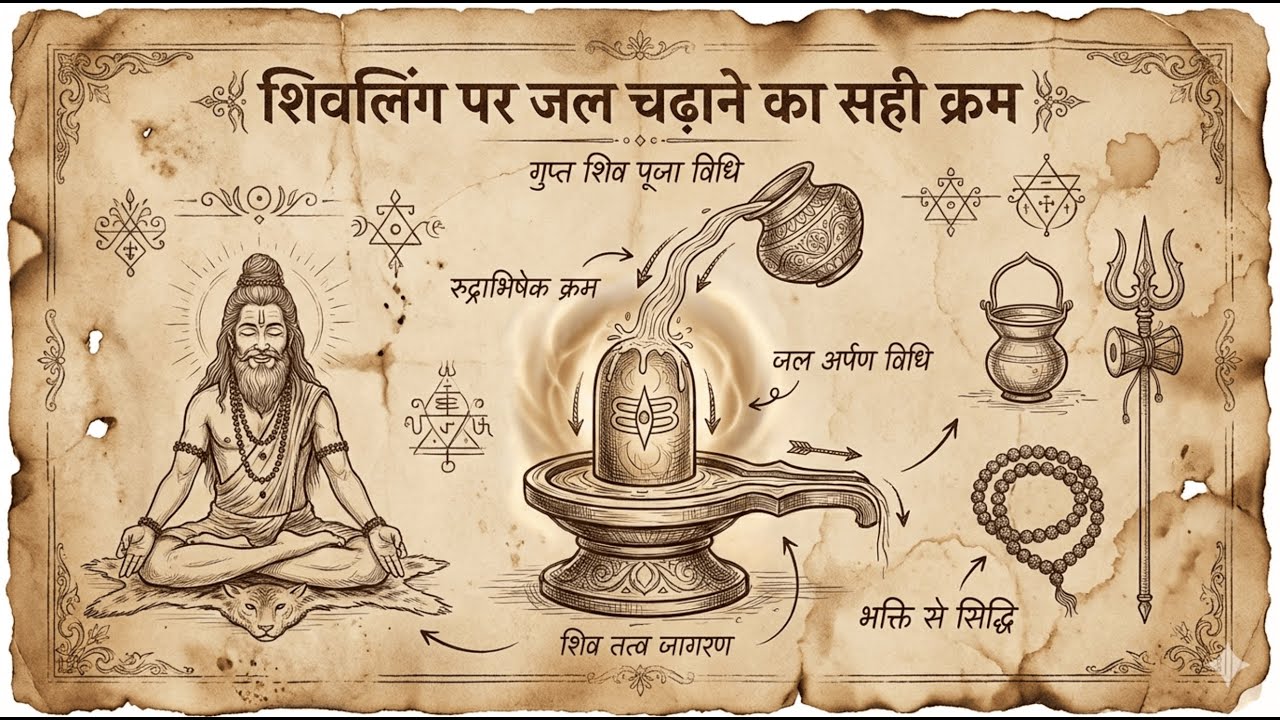 शिवलिंग पर जल चढ़ाने का सही क्रम
गुप्त शिव पूजा विधि
रुद्राभिषेक क्रम
जल अर्पण विधि
भक्ति से सिद्धि
शिव तत्व जागरण